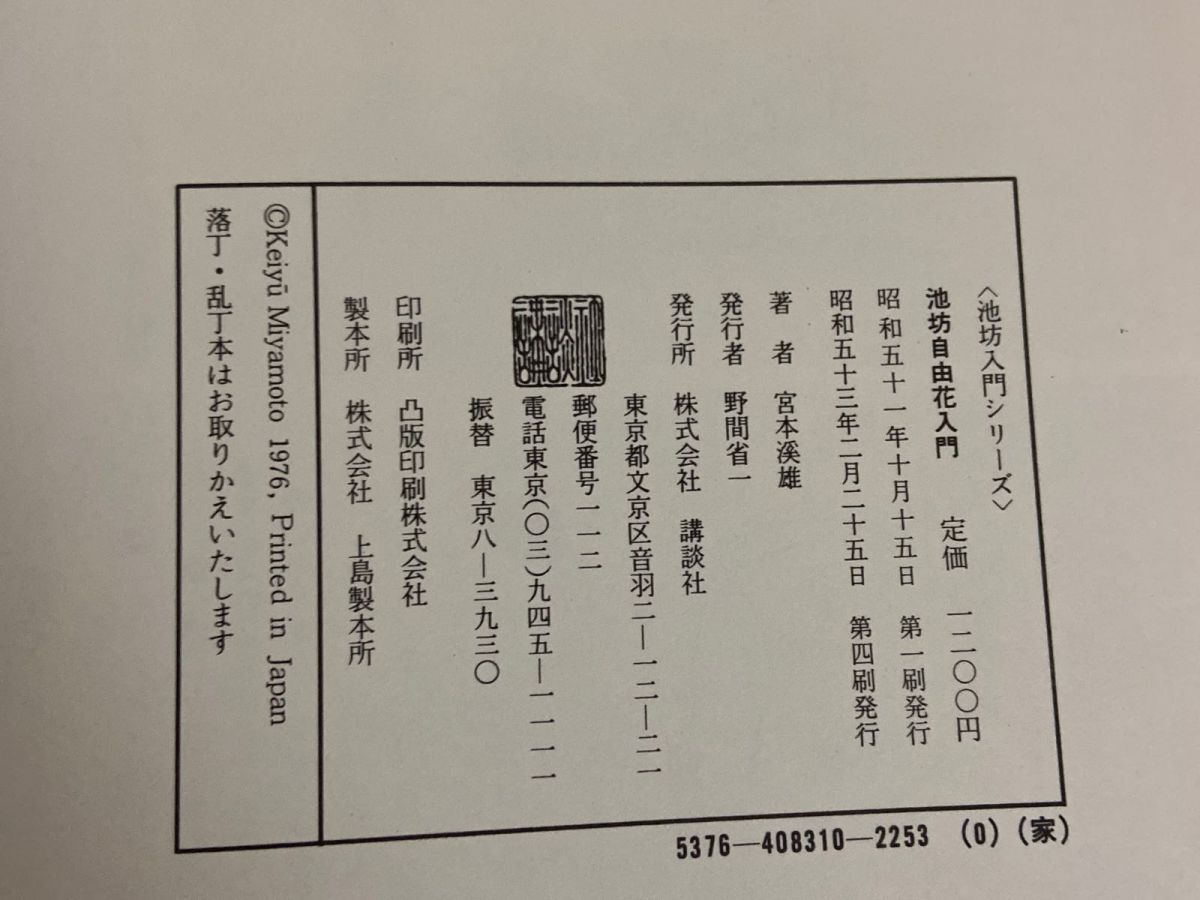 〈池坊入門シリーズ〉
池坊自由花入門 定価 一二〇〇円
昭和五十一年十月十五日 第一刷発行
昭和五十三年二月二十五日 第四刷発行
著者 宮本溪雄
発行者 野間省一
発行所 株式会社 講談社
東京都文京区音羽二―一二―二一
郵便番号一一二
電話東京(〇三)九四五―一一一一
振替 東京八―三九三〇
印刷所 凸版印刷株式会社
製本所 株式会社 上島製本所
©Keiyū Miyamoto 1976, Printed in Japan
落丁・乱丁本はお取りかえいたします
5376―408310―2253 (0) (家)